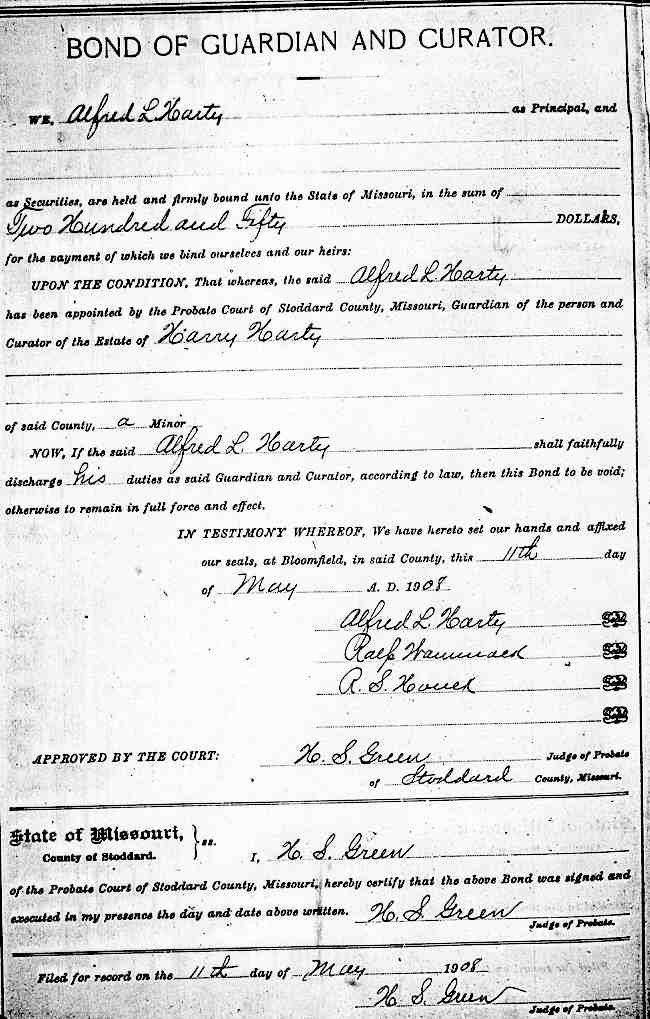 BOND OF GUARDIAN AND CURATOR.
WE, Alfred L. Harty as Principal, and
as Securities, are held and firmly bound unto the State of Missouri, in the sum of
Two Hundred and Fifty DOLLARS,
for the payment of which we bind ourselves and our heirs:
UPON THE CONDITION, That whereas, the said Alfred L. Harty
has been appointed by the Probate Court of Stoddard County, Missouri, Guardian of the person and
Curator of the Estate of Harry Harty
of said County, a Minor
NOW, If the said Alfred L. Harty shall faithfully
discharge his duties as said Guardian and Curator, according to law, then this Bond to be void;
otherwise to remain in full force and effect.
IN TESTIMONY WHEREOF, We have hereto set our hands and affixed
our seals, at Bloomfield, in said County, this 11th day
of May A. D. 1908
Alfred L. Harty Seal
Ralf Wammack Seal
R. S. Houck Seal
Seal
APPROVED BY THE COURT: H. S. Green Judge of Probate
of Stoddard County, Missouri.
State of Missouri, } ss.
County of Stoddard. I, H. S. Green
of the Probate Court of Stoddard County, Missouri, hereby certify that the above Bond was signed and
executed in my presence the day and date above written. H. S. Green
Judge of Probate.
Filed for record on the 11th day of May 1908
H. S. Green
Judge of Probate.